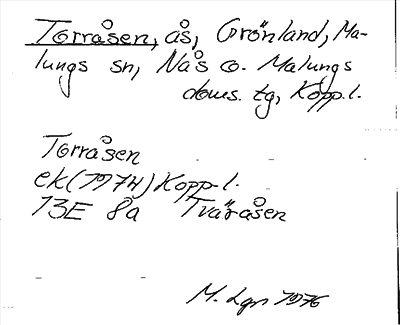 Torråsen, ås, Grönland, Ma-
lungs sn, Nås o. Malungs
doms. tg, Kopp.l.
Torråsen
ek(1974) Kopp.l.
13E 8a Tväråsen
M. Lgn 1976